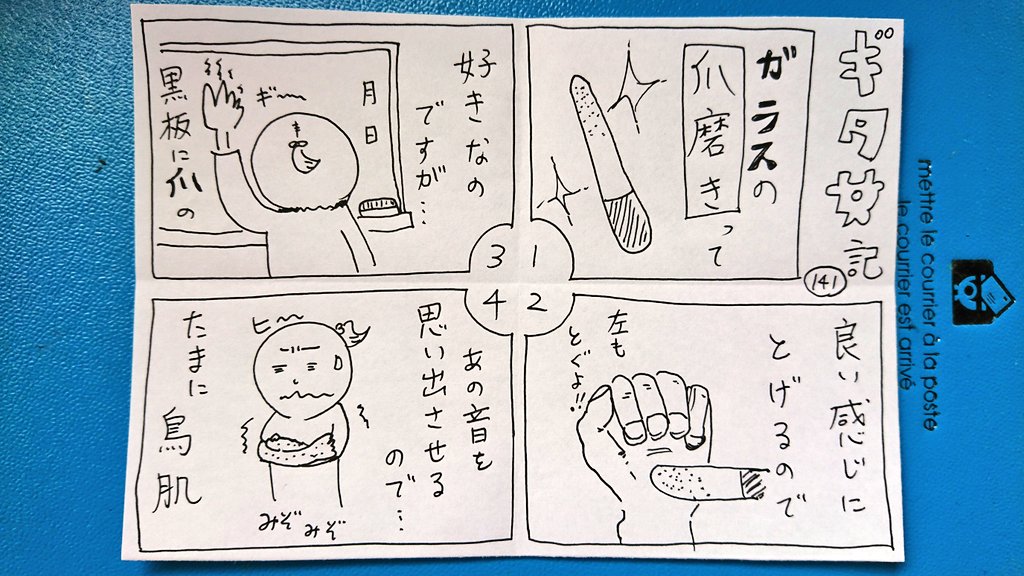 ギタ女記
141
ガラスの
爪磨きって
1
良い感じに
とげるので
左も
とぐよ!!
2
好きなの
ですが…
月日
ギ〜
黒板に爪の
3
あの音を
思い出させる
ので…
ヒ〜
みぞみぞ
たまに鳥肌
4
mettre le courrier à la poste
le courrier est arrivé